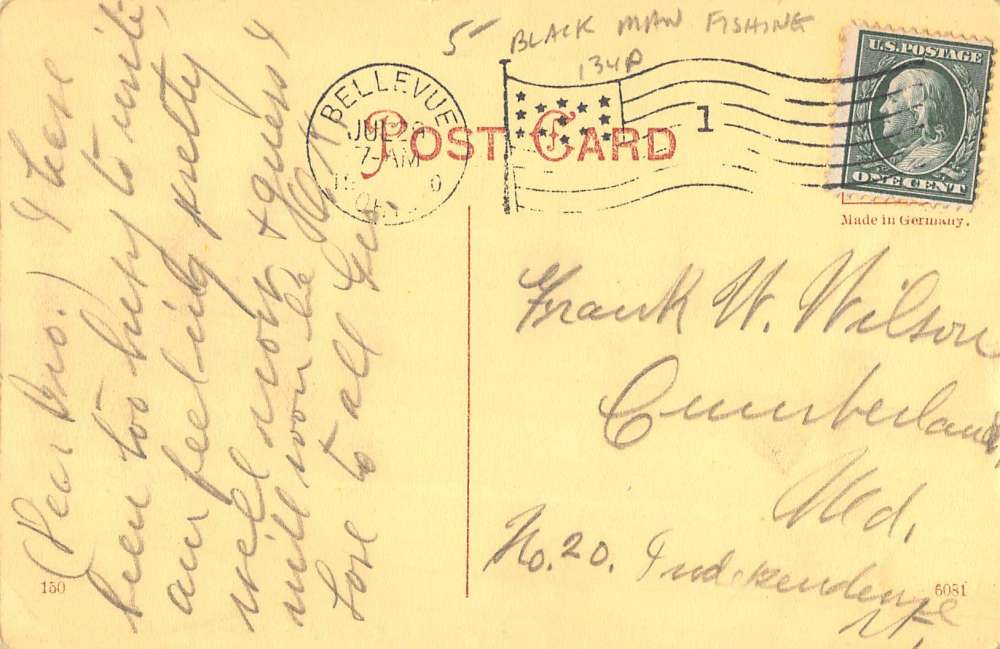 5 BLACK MAN FISHING
134P
U.S. POSTAGE
ONE CENT
BELLEVUE
JUL
7-AM
19 0
1
POST CARD
Made in Germany.
Dear Bro.) I have
been too busy to write,
am feeling pretty
well now & guess I
will soon be
Love to all Geo.
Frank W. Wilson
Cumberland,
Md.
No. 20. Independence
St.
150
6081